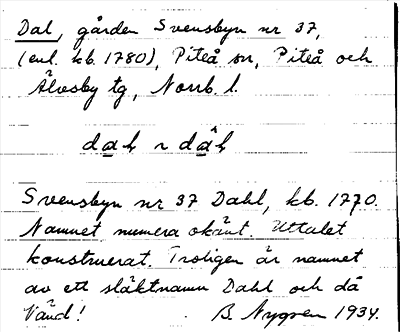 Dal, gården Svensbyn nr 37,
(enl. kb. 1780), Piteå sn, Piteå och
Älvsby tg, Norrb. l.
Svensbyn nr 37 Dahl, kb. 1770.
Namnet numera okänt. Uttalet
konstruerat. Troligen är namnet
av ett släktnamn Dahl och då
Vänd! B. Nygren 1934.